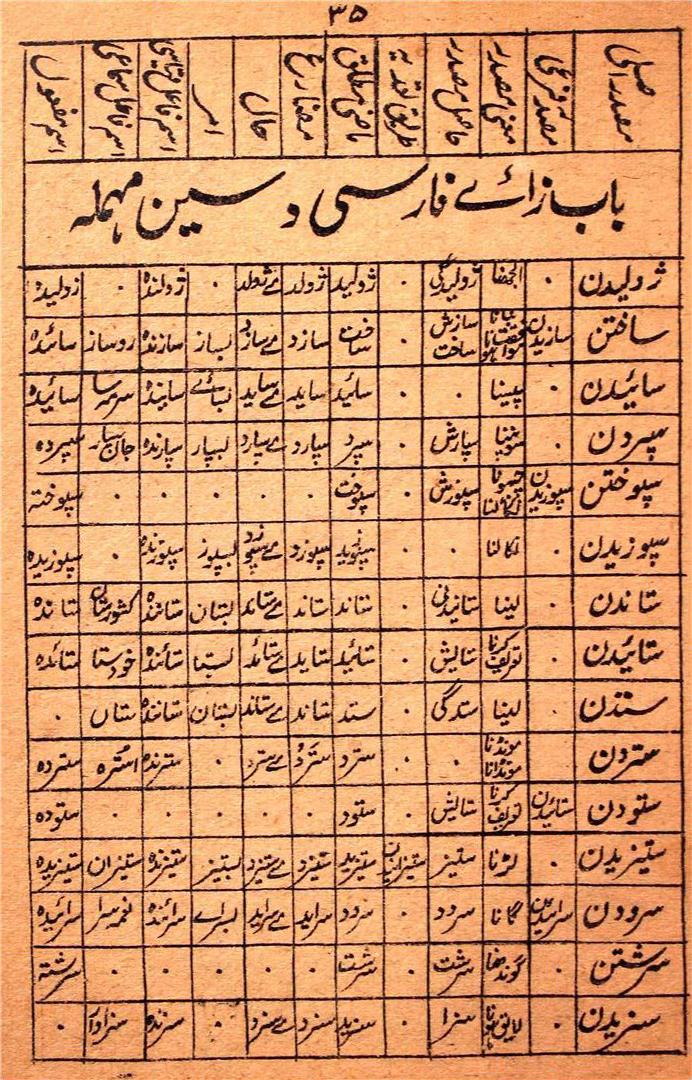 ۳۵
مصدر اصلی مصدر فرعی معنی مصدر حاصل مصدر طریق تعدیہ ماضی مطلق مضارع حال امر اسم فاعل قیاسی اسم فاعل سماعی اسم مفعول
باب زائے فارسی و سین مہملہ
ژولیدن ۰ الجھنا ژولیدگی ۰ ژولید ژولد مے ژولد ۰ ژولندہ ۰ ژولیدہ
ساختن سازیدن بنانا موافق ہونا سازش ساخت ۰ ساخت سازد مے سازد بساز سازندہ روساز
سائیدن ۰ پیسنا ۰ ۰ سائید ساید مے ساید بسائے سایندہ سرمہ سا سائیدہ
سپردن ۰ سونپنا سپارش ۰ سپرد سپارد مے سپارد بسپار سپارندہ جان سپار سپردہ
سپوختن سپوزیدن چبھونا نکالنا سپوزش ۰ سپوخت ۰ ۰ ۰ ۰ ۰ سپوختہ
سپوزیدن ۰ نکالنا ۰ ۰ سپوزید سپوزد مے سپوزد بسپوز سپوزندہ ۰ سپوزیدہ
ستاندن ۰ لینا ستانیدنی ۰ ستاند ستاند مے ستاند بستان ستانندہ کشورستان ستاندہ
ستائیدن ۰ تعریف کرنا ستایش ۰ ستائید ستاید مے ستائد بستا ستائندہ خودستا ستائدہ
ستدن ۰ لینا ستدگی ۰ ستد ستاند مے ستاند بستان ستانندہ ستاں ۰
ستردن ۰ مونڈنا مونڈانا ۰ ۰ سترد سترد مے سترد ۰ سترندہ استرہ ستردہ
ستودن ستائیدن تعریف کرنا ستایش ۰ ستود ۰ ۰ ۰ ۰ ۰ ستودہ
ستیزیدن ۰ لڑنا ستیز ستیزانیدن ستیزید ستیزد مے ستیزد بستیز ستیزندہ ستیزان ستیزیدہ
سرودن سرائیدن گانا سرود ۰ سرود سراید مے سراید بسرائے سرائندہ نغمہ سرا سرائیدہ
سرشتن ۰ گوندھنا سرشت ۰ سرشت ۰ ۰ ۰ ۰ ۰ سرشتہ
سزیدن ۰ لایق ہونا سزا ۰ سزید سزد مے سزد ۰ سزندہ سزاوار ۰